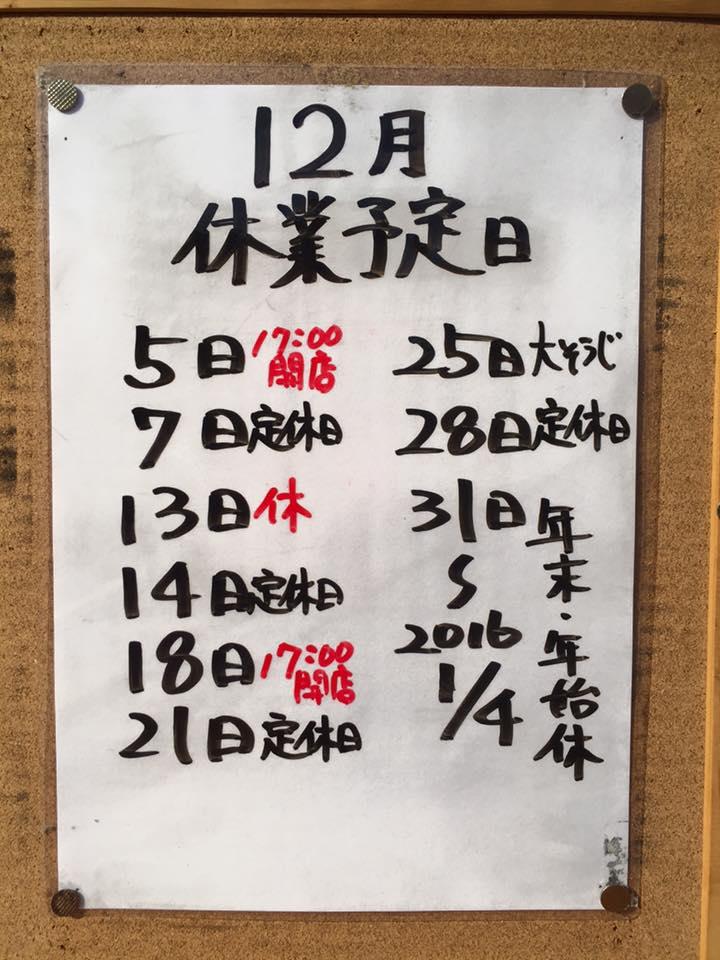 12月
休業予定日
5日 17:00
開店
7日定休日
13日休
14日定休日
18日 17:00
開店
21日定休日
25日大そうじ
28日定休日
31日
〜
2016
1/4
年末・年始休